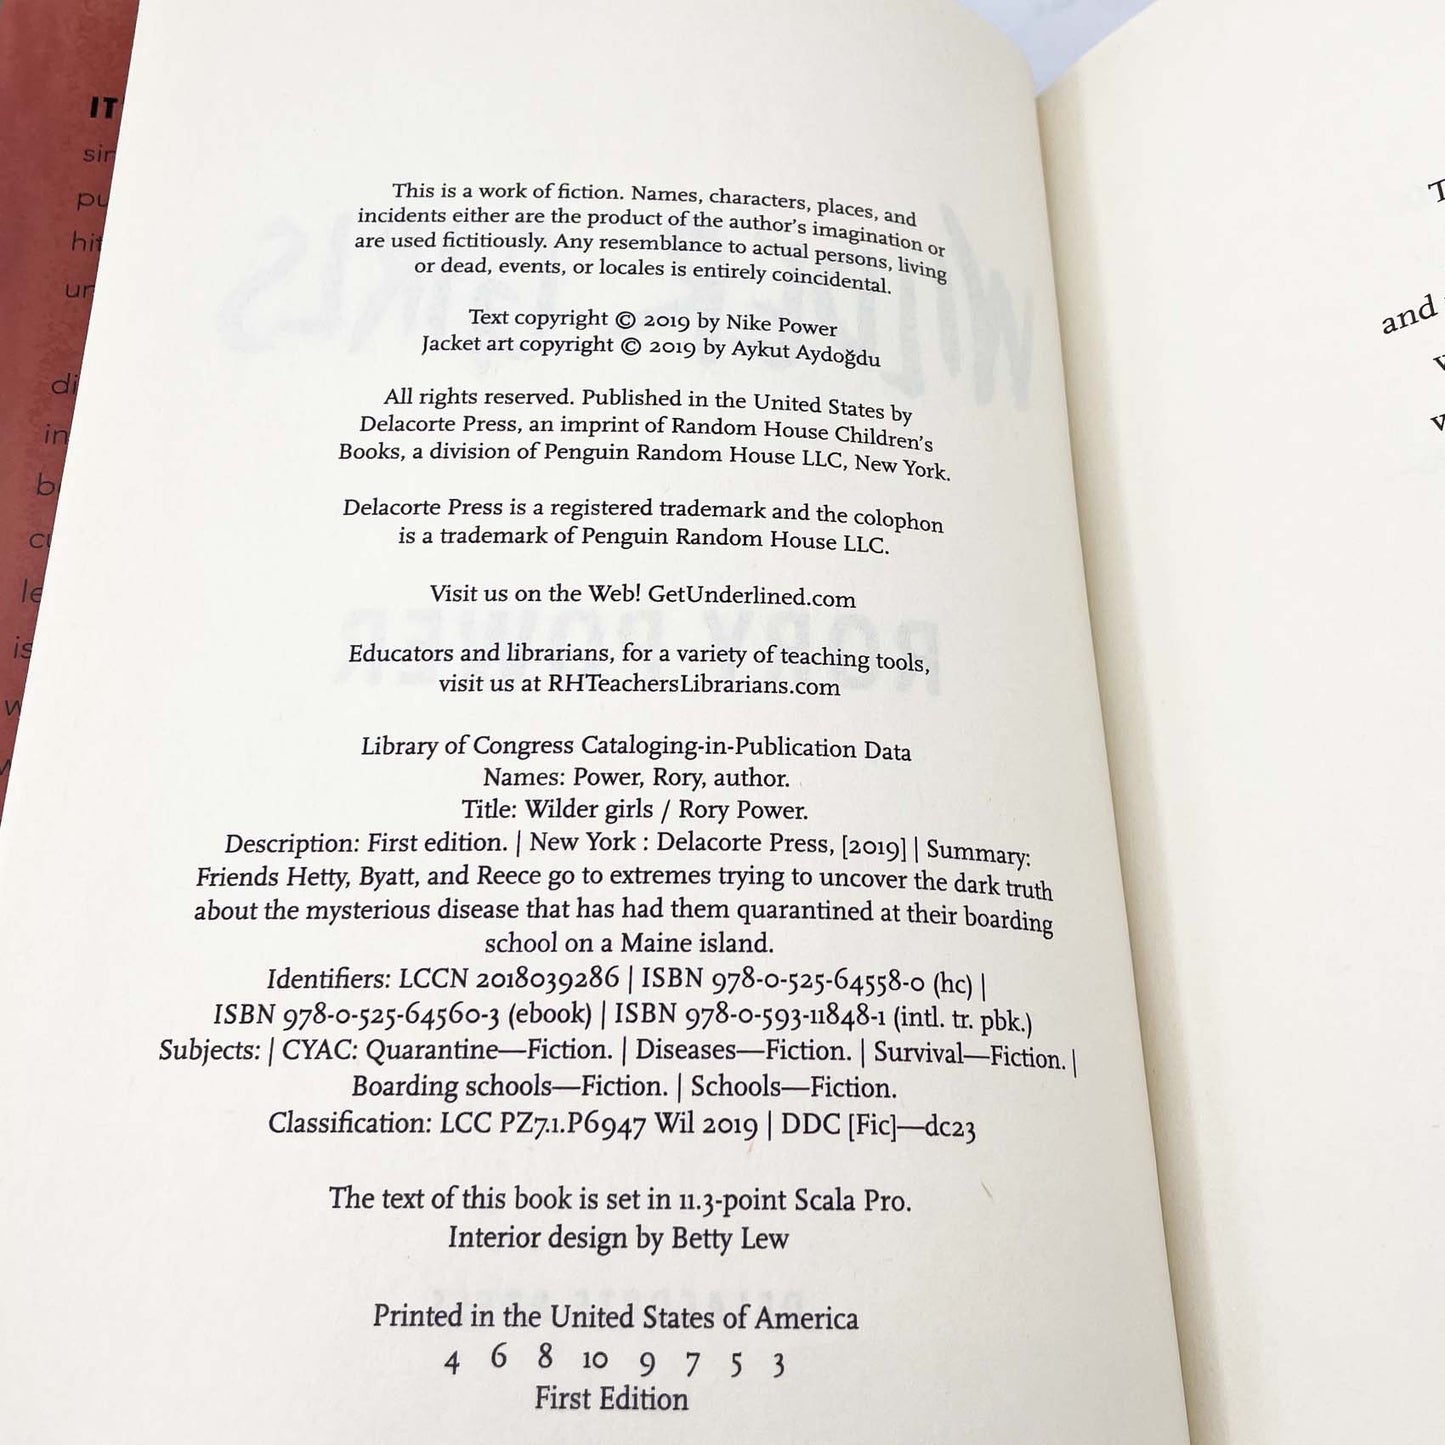 IT
sin
pu
hit
un
di
in
b
cu
le
is
w
This is a work of fiction. Names, characters, places, and
incidents either are the product of the author's imagination or
are used fictitiously. Any resemblance to actual persons, living
or dead, events, or locales is entirely coincidental.
Text copyright © 2019 by Nike Power
Jacket art copyright © 2019 by Aykut Aydoğdu
All rights reserved. Published in the United States by
Delacorte Press, an imprint of Random House Children's
Books, a division of Penguin Random House LLC, New York.
Delacorte Press is a registered trademark and the colophon
is a trademark of Penguin Random House LLC.
Visit us on the Web! GetUnderlined.com
Educators and librarians, for a variety of teaching tools,
visit us at RHTeachersLibrarians.com
Library of Congress Cataloging-in-Publication Data
Names: Power, Rory, author.
Title: Wilder girls / Rory Power.
Description: First edition. | New York : Delacorte Press, [2019] | Summary:
Friends Hetty, Byatt, and Reece go to extremes trying to uncover the dark truth
about the mysterious disease that has had them quarantined at their boarding
school on a Maine island.
Identifiers: LCCN 2018039286 | ISBN 978-0-525-64558-0 (hc) |
ISBN 978-0-525-64560-3 (ebook) | ISBN 978-0-593-11848-1 (intl. tr. pbk.)
Subjects: | CYAC: Quarantine—Fiction. | Diseases—Fiction. | Survival—Fiction. |
Boarding schools—Fiction. | Schools—Fiction.
Classification: LCC PZ7.1.P6947 Wil 2019 | DDC [Fic]—dc23
The text of this book is set in 11.3-point Scala Pro.
Interior design by Betty Lew
Printed in the United States of America
4 6 8 10 9 7 5 3
First Edition
and